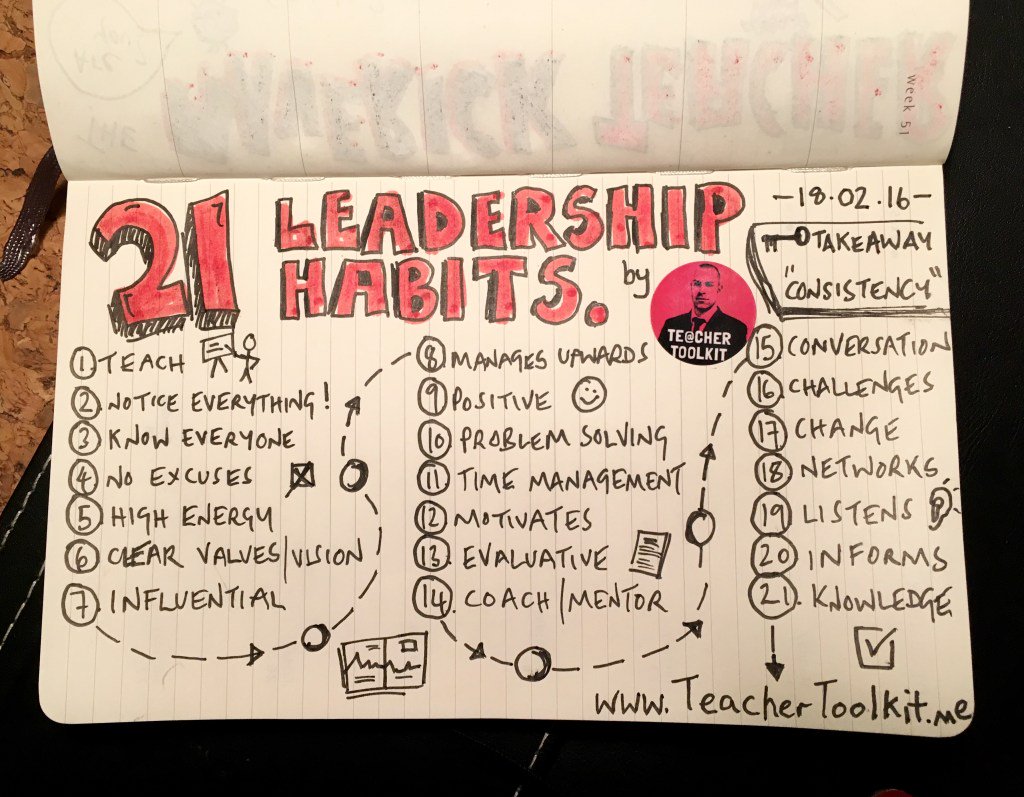 week 51
21 LEADERSHIP
HABITS.
by
TE@CHER
TOOLKIT
-18.02.16-
TAKEAWAY
"CONSISTENCY"
1 TEACH
2. NOTICE EVERYTHING!
3. KNOW EVERYONE
4. NO EXCUSES
5. HIGH ENERGY
6. CLEAR VALUES/VISION
7. INFLUENTIAL
8. MANAGES UPWARDS
9. POSITIVE
10. PROBLEM SOLVING
11. TIME MANAGEMENT
12. MOTIVATES
13. EVALUATIVE
14. COACH/MENTOR
15. CONVERSATION
16. CHALLENGES
17. CHANGE
18. NETWORKS
19. LISTENS
20. INFORMS
21. KNOWLEDGE
www.TeacherToolkit.me